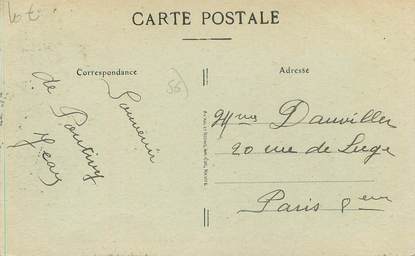 CARTE POSTALE
Correspondance
Souvenir
de Pontivy
Jean
Adresse
Mme Dauviller
20 rue de Liège
Paris 9em